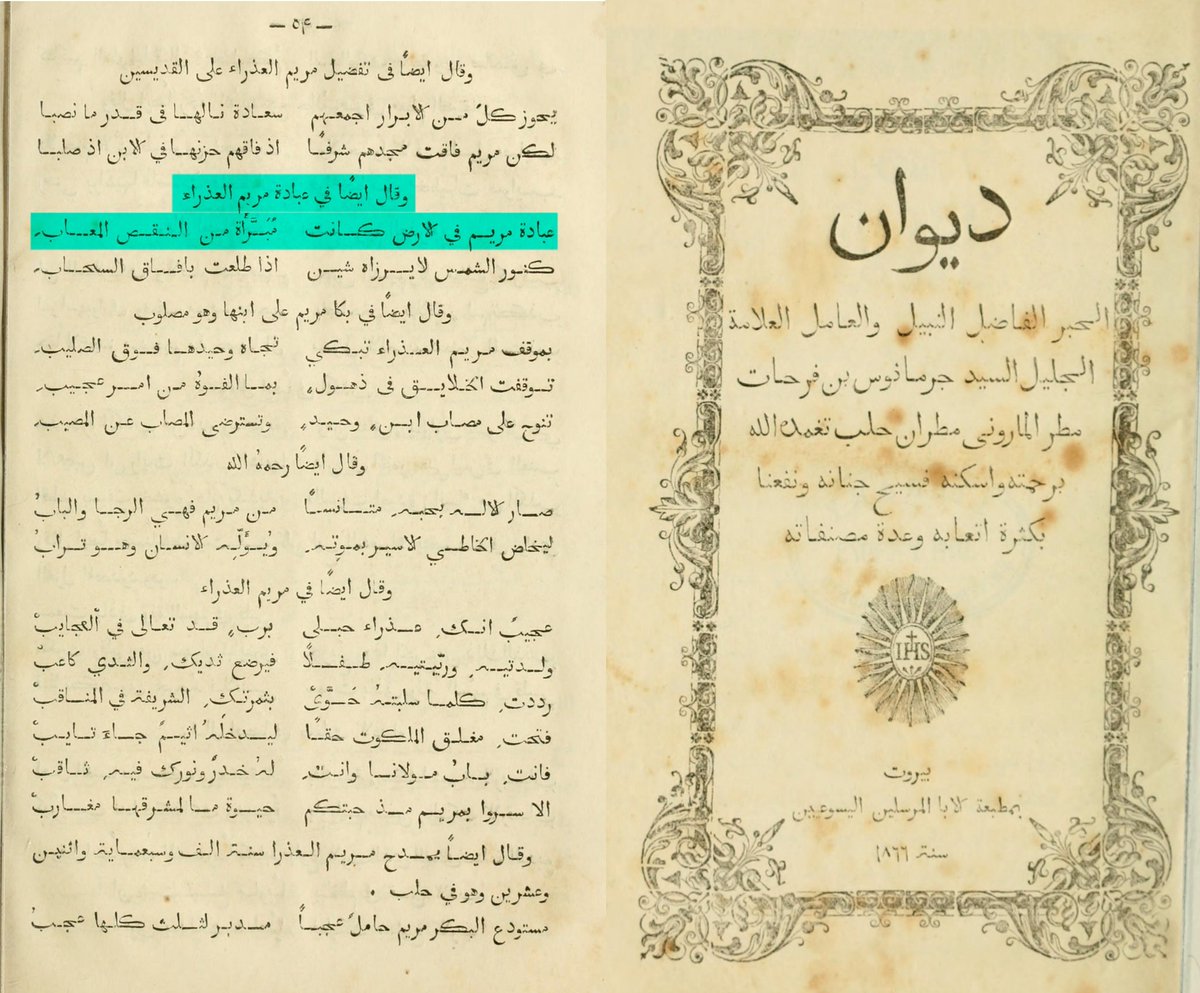 ديوان
الحبر الفاضل النبيل والعامل العلامة
الجليل السيد جرمانوس بن فرحات
مطر المارونى مطران حلب تغمده الله
برحمته واسكنه فسيح جنانه ونفعنا
بكثرة اتعابه وعدة مصنفاته
IHS
بيروت
بمطبعة الابا المرسلين اليسوعيين
سنة ١٨٦٦
— ٥۴ —
وقال ايضاً فى تفضيل مريم العذراء على القديسين
يحوز كلٌ من الابرار اجمعهم سعادة نالها فى قدر ما نصبا
لكن مريم فاقت مجدهم شرفاً اذ فاقهم حزنها في الابن اذ صلبا
وقال ايضًا في عبادة مريم العذراء
عبادة مريم في الارض كانت مُبَرَّأَة من النقص المعاب
كنور الشمس لا يرزاه شين اذا طلعت بافاق السحاب
وقال ايضًا في بكا مريم على ابنها وهو مصلوب
بموقف مريم العذراء تبكي تجاه وحيدها فوق الصليب
توقفت الخلايق في ذهولٍ بما الفوهُ من امر عجيب
تنوح على مصاب ابنٍ وحيدٍ وتسترضى المصاب عن المصيب
وقال ايضًا رحمهُ الله
صار الاله بحبه متانسًا من مريم فهي الرجا والبابُ
ليخاض الخاطي الاسير بموتهِ ويُؤَلّه الانسان وهو ترابُ
وقال ايضًا في مريم العذراء
عجيبٌ انكِ عذراء حبلى بربٍ قد تعالى في العجايبْ
ولدتيه وربّيتيه طفلًا فيرضع ثديك والثدي كاعبْ
رددتِ كلما سلبتهُ حَوَّىْ بثمرتكِ الشريفة في المناقبْ
فتحتِ مغلق الملكوت حقًا ليدخلَهُ اثيمٌ جاءَ تايبْ
فانتِ بابُ مولانا وانتِ لهُ خدرٌ ونورك فيه ثاقبْ
الا سروا بمريم مذ حبتكم حيوة ما لمشرقها مغاربْ
وقال ايضاً يمدح مريم العذرا سنة الف وسبعماية واثنين
وعشرين وهو في حلب .
مستودع البكر مريم حاملٌ عجباً مدبر لثلث كلها عجبُ